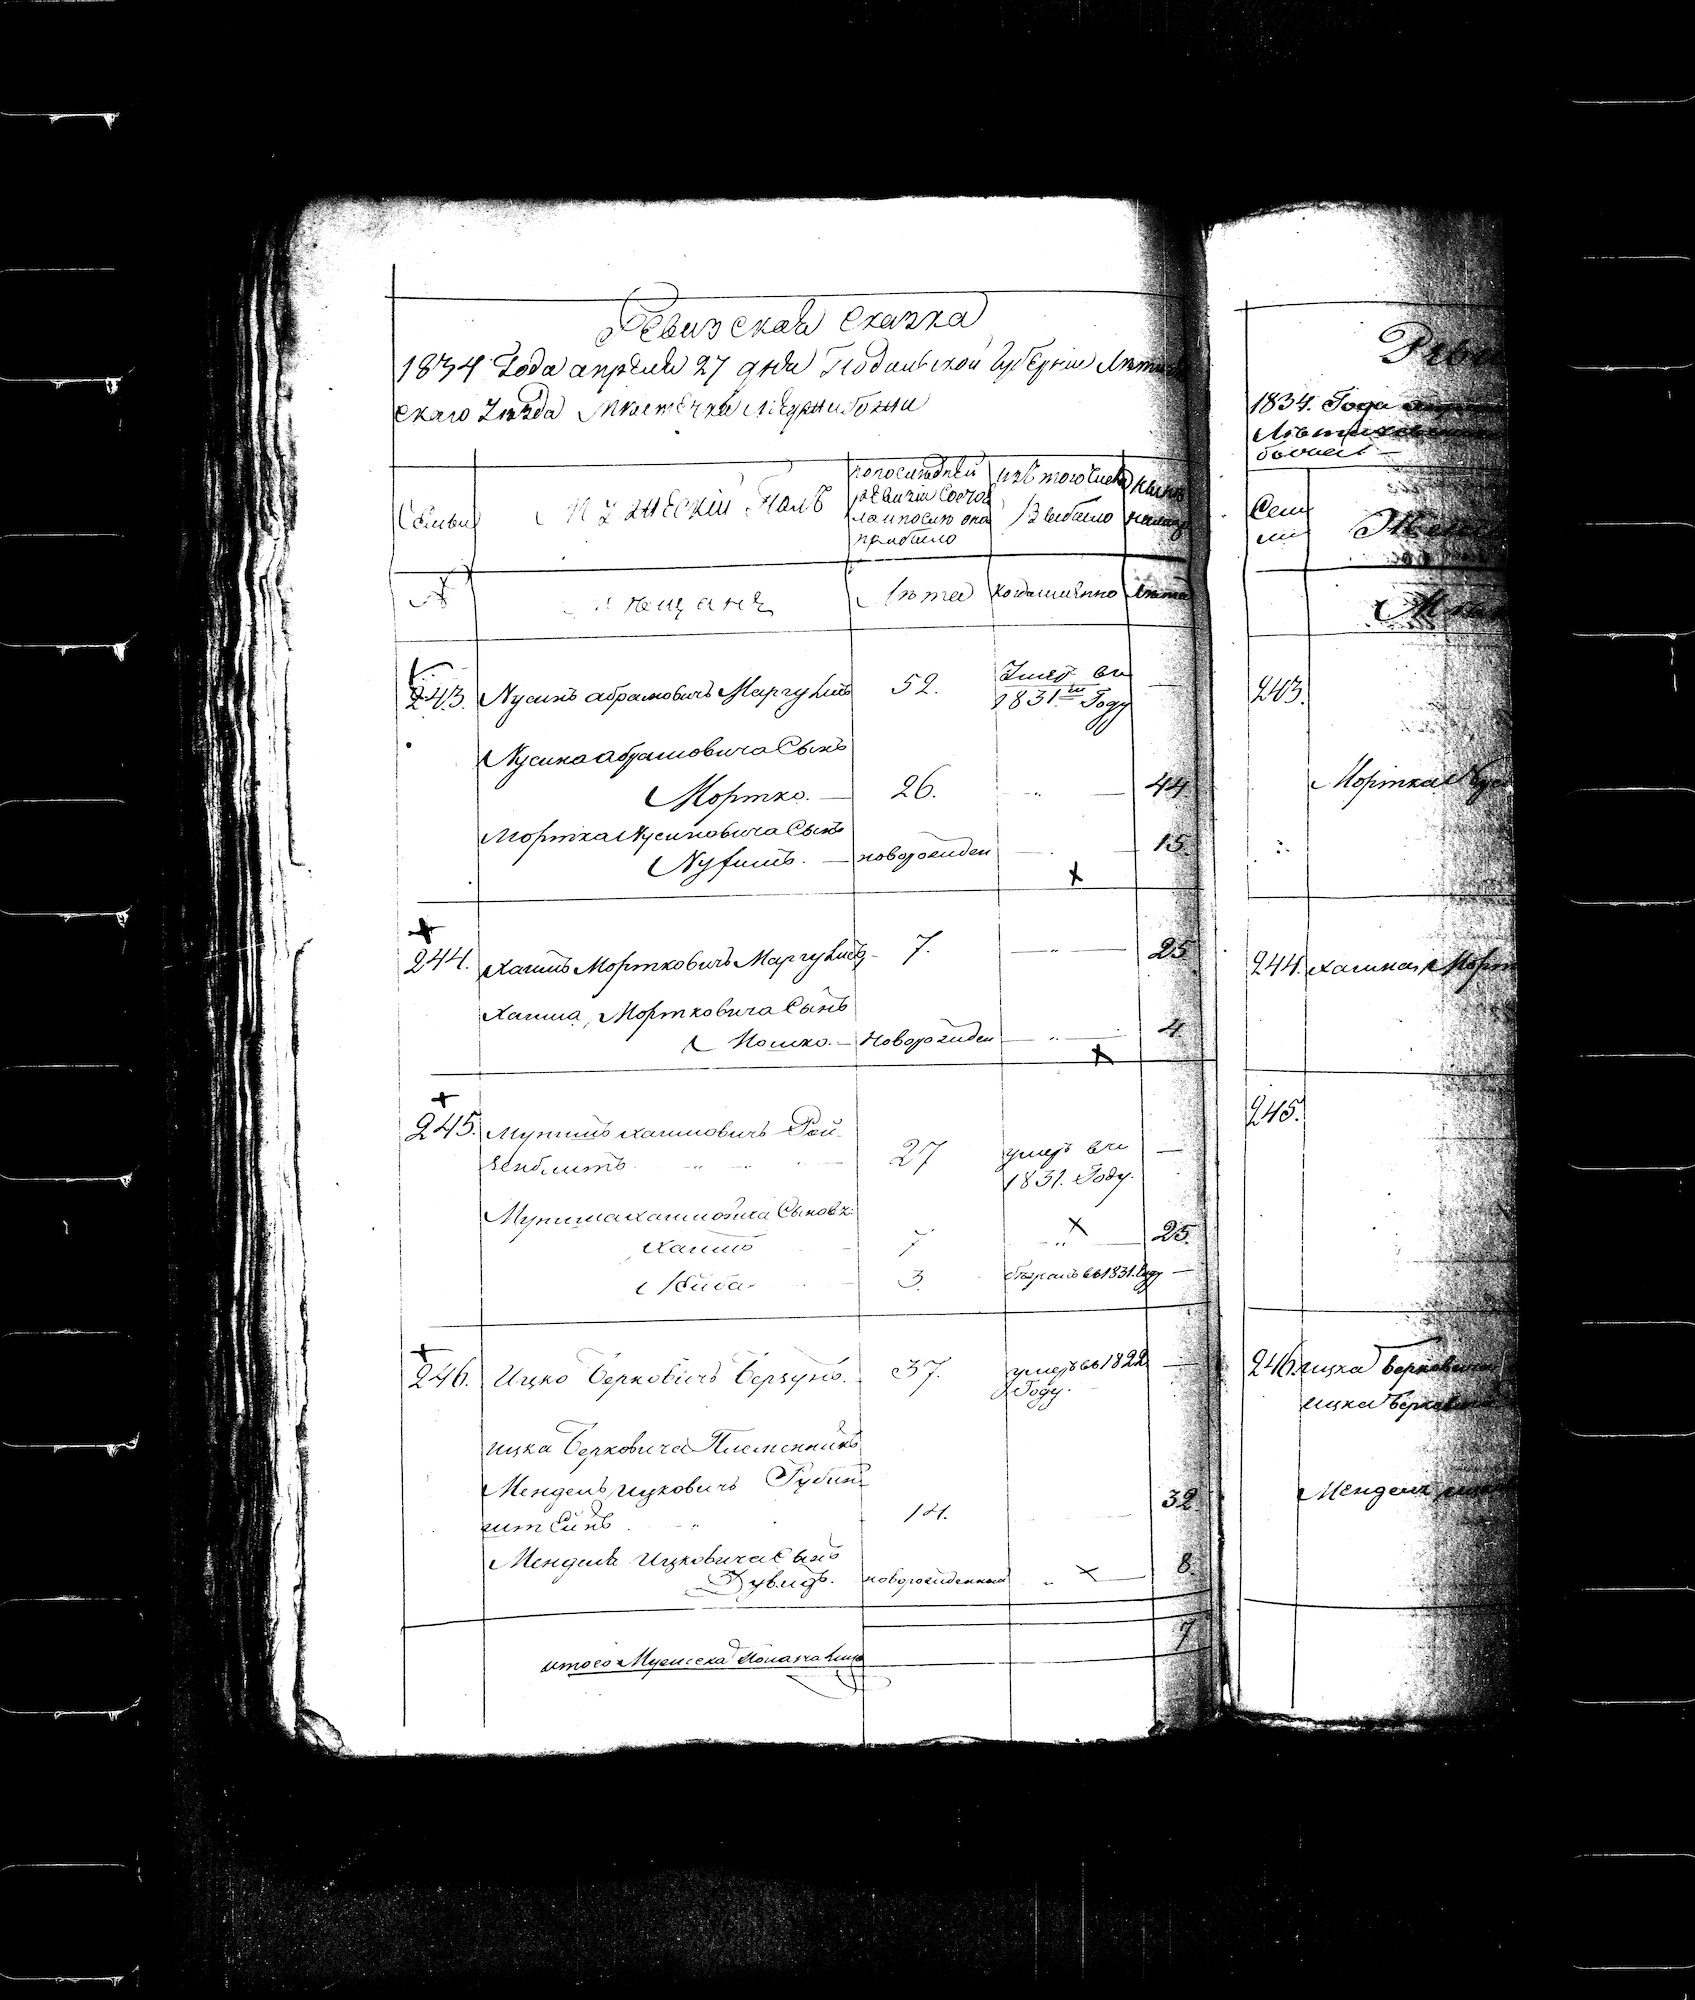 Ревизская Сказка
1834 Года апреля 27 дня Подольской Губерніи Летичев
скаго Уезда Местечка Меджибожи
Семьи
Мужескій Полъ
по последней
ревизіи состоя
ло и после она
прибыло
изъ того числа
выбыло
ныне
на лицо
№
Мещане
Лета
когда именно
Лета
243. Нусинъ абрамовичъ Маргулисъ 52. Умеръ въ —
1831м Году
Нусина абрамовича Сынъ
Мортко. — 26. — 44
Мортка Нусиновича Сынъ
— новорожден — 15.
244. Хаимъ Мортковичъ Маргулисъ 7. — 25
Хаима Мортковича Сынъ
Мошко. — Новорожден — 4.
245. хаимовичъ Рой
зенблитъ 27 умеръ въ —
1831. Году.
хаимовича Сыновя:
Хаимъ 7 — 25.
Лейба 3. въ 1831. Году —
246. Ицко Берковичъ 37. умеръ въ 1822 —
Году.
ицка Берковича Племенникъ
Мендель ицковичъ Рубин
штейнъ 14. 32.
Менделя Ицковича Сынъ
Дувидъ. новорожденный — 8.
итого Мужеска Пола на лицо 7
1834. Года
Семьи
243.
Мортка
244. Хаима Морт
245.
246. ицка Берковича
ицка Берковича
Менделя